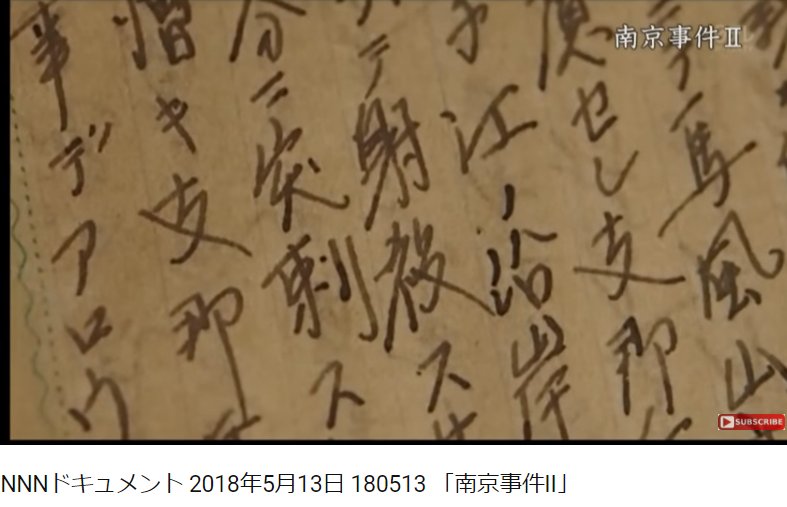 南京事件Ⅱ
馬風山
セシ支那
江ノ沿岸
テ射殺ス
分ニ突刺ス
憎キ支那
事デアロウ
SUBSCRIBE
NNNドキュメント 2018年5月13日 180513 「南京事件II」